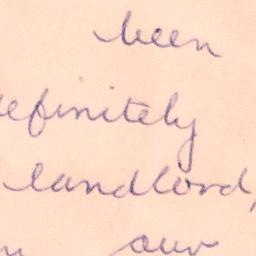 been
efinitely
landlord,
our